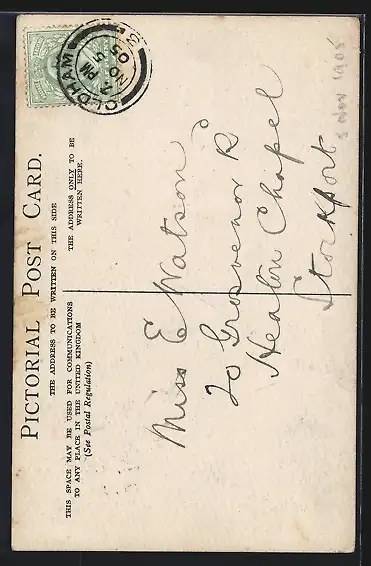 PICTORIAL POST CARD.
THE ADDRESS TO BE WRITTEN ON THIS SIDE
THIS SPACE MAY BE USED FOR COMMUNICATIONS
TO ANY PLACE IN THE UNITED KINGDOM
(See Postal Regulation)
THE ADDRESS ONLY TO BE
WRITTEN HERE.
OLDHAM
7 PM
NO 5
05
Miss E Watson
20 Grosvenor Rd
Heaton Chapel
Stockport
5 Nov 1905